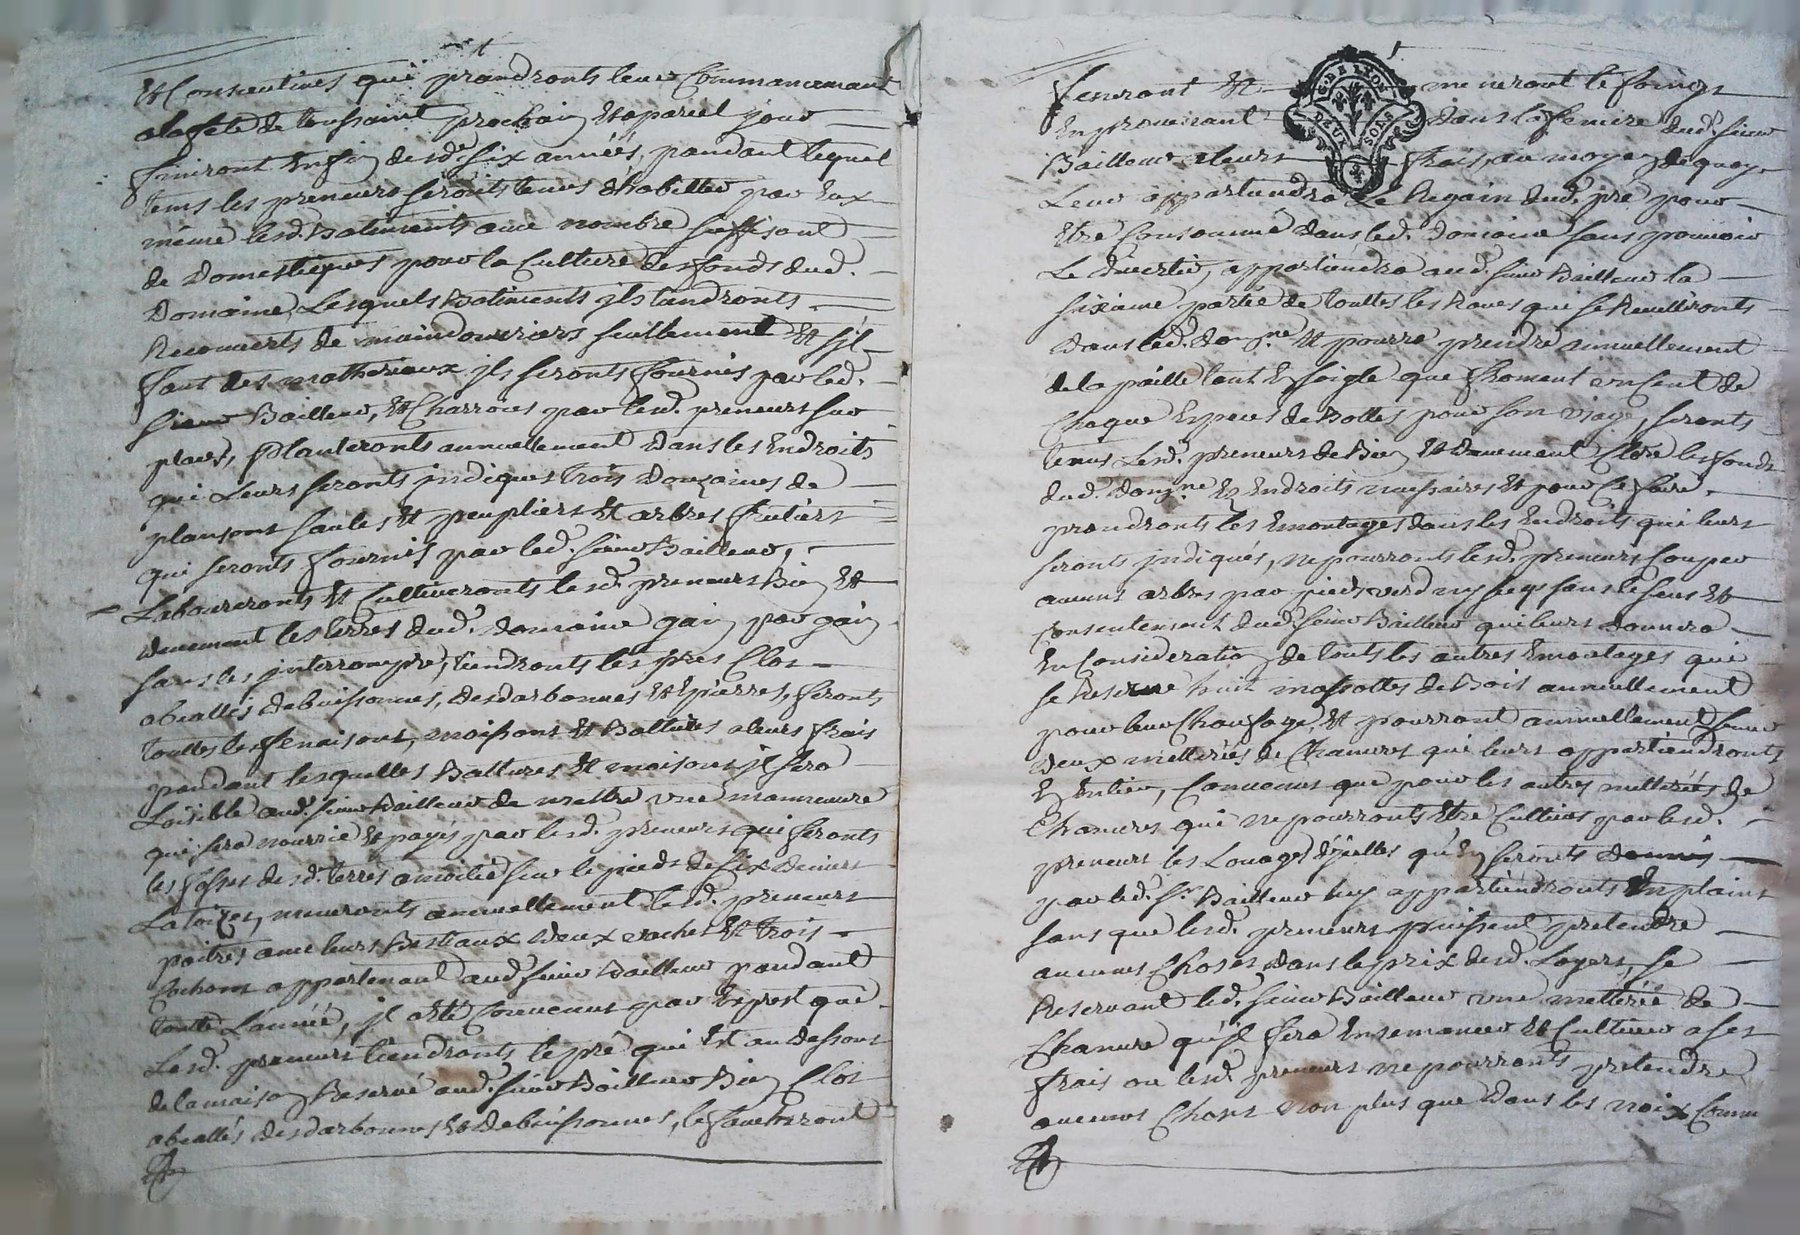 Et Consecutives qui prandronts leur Commancemant
a la fete de toussaint prochain Et a pareil jour
finiront En fin desd. six années, pandant lequel
tems les preneurs seronts tenus d'habitter par Eux
même lesd. Batiments avec nombre suffisant
de Domestiques pour la Culture des fonds dud.
Domaine Lesquels Batiments ils tandronts
Recouverts de maindouvriers seullement Et s'il
faut des matheriaux ils seronts fournis par led.
sieur Bailleur, Et Charroies par lesd. preneurs sur
place, Planteronts annuellement Dans les Endroits
qui Leurs seronts indiques trois Douzaines de
plansons saules Et peupliers Et arbres frutiers
qui seronts fournis par led. sieur Bailleur,
Laboureronts Et Cultiveronts lesd. preneurs Bien Et
duement les terres dud. domaine gain par gain
sans les interrompre, tiendronts les prés Clos
abeallés debuissonnes, desdarbonnes Et Epierres, feronts
touttes les fenaisons, moissons Et Battures a leurs frais
pandant lesquelles Battures Et moisons il sera
Loisible aud. sieur Bailleur de mettre une manoeuvre
qui sera nourrie Et payés par lesd. preneurs qui feronts
les fosses desd. terres a moitié sur le pieds de six deniers
La toizes, meneronts annuellement lesd. preneurs
paitres avec leurs Bestiaux deux vaches Et trois
Cochons appartenant aud. sieur Bailleur pandant
toutte L'année, il a Eté Convenus par Exprest que
Lesd. preneurs tiendronts le pré qui Est au dessous
de la maison Reservé aud. sieur Bailleur Bien Clos
abeallés desdarbonnes Et debuissonnes, le faucheront
feneront Et meneront le foings
En provenant dans la feniere dud. sieur
Bailleur a leurs frais, au moyen de quoy
Leur appartiendra le Regain dud. pré pour
Etre Consommé dans led. Domaine sans pouvoir
Le divertir, appartiendra aud. sieur Bailleur la
sixieme partie de touttes les Raves que se Ceuilliront
dans led. Domne Et pourra prendre annuellement
de la paille tant En seigle que froment un Cent de
Chaque Especes de Bottes pour son usage, seronts
tenus Lesd. preneurs de Bien Et Duement Clore les fonds
dud. domne En Endroits necessaires Et pour Ce faire
prandronts les Emontages dans les Endroits qui leurs
seronts indiqués, ne pourronts lesd. preneurs Couper
aucuns arbres par pieds verd ny secq sans le sceus Et
Consentement dud. sieur Bailleur qui leurs donnera
En Consideration de touts les autres Emontages qui
se Reserve huit massottes de Bois annuellement
pour leur Chaufage, Et pourront annuellement semer
deux metterées de Chanvres qui leurs appartiendronts
En Entier, Convenus que pour les autres metterées de
Chanvres qui ne pourronts Etre Cultivés par lesd.
preneurs les Louages d'jcelles qu'en seronts donnés
par led. sr. Bailleur luy appartiendronts En plains
sans que lesd. preneurs puissent pretendre
aucunes Choses dans le prix desd. Loyers, se
Reservant led. sieur Bailleur une metterée de
Chanvre qu'il fera Ensemancer Et Cultiver a ses
frais ou lesd. preneurs ne pourronts pretendre
aucunes Choses non plus que dans les noix Comme
G. DE LYON
DEUX SOLS